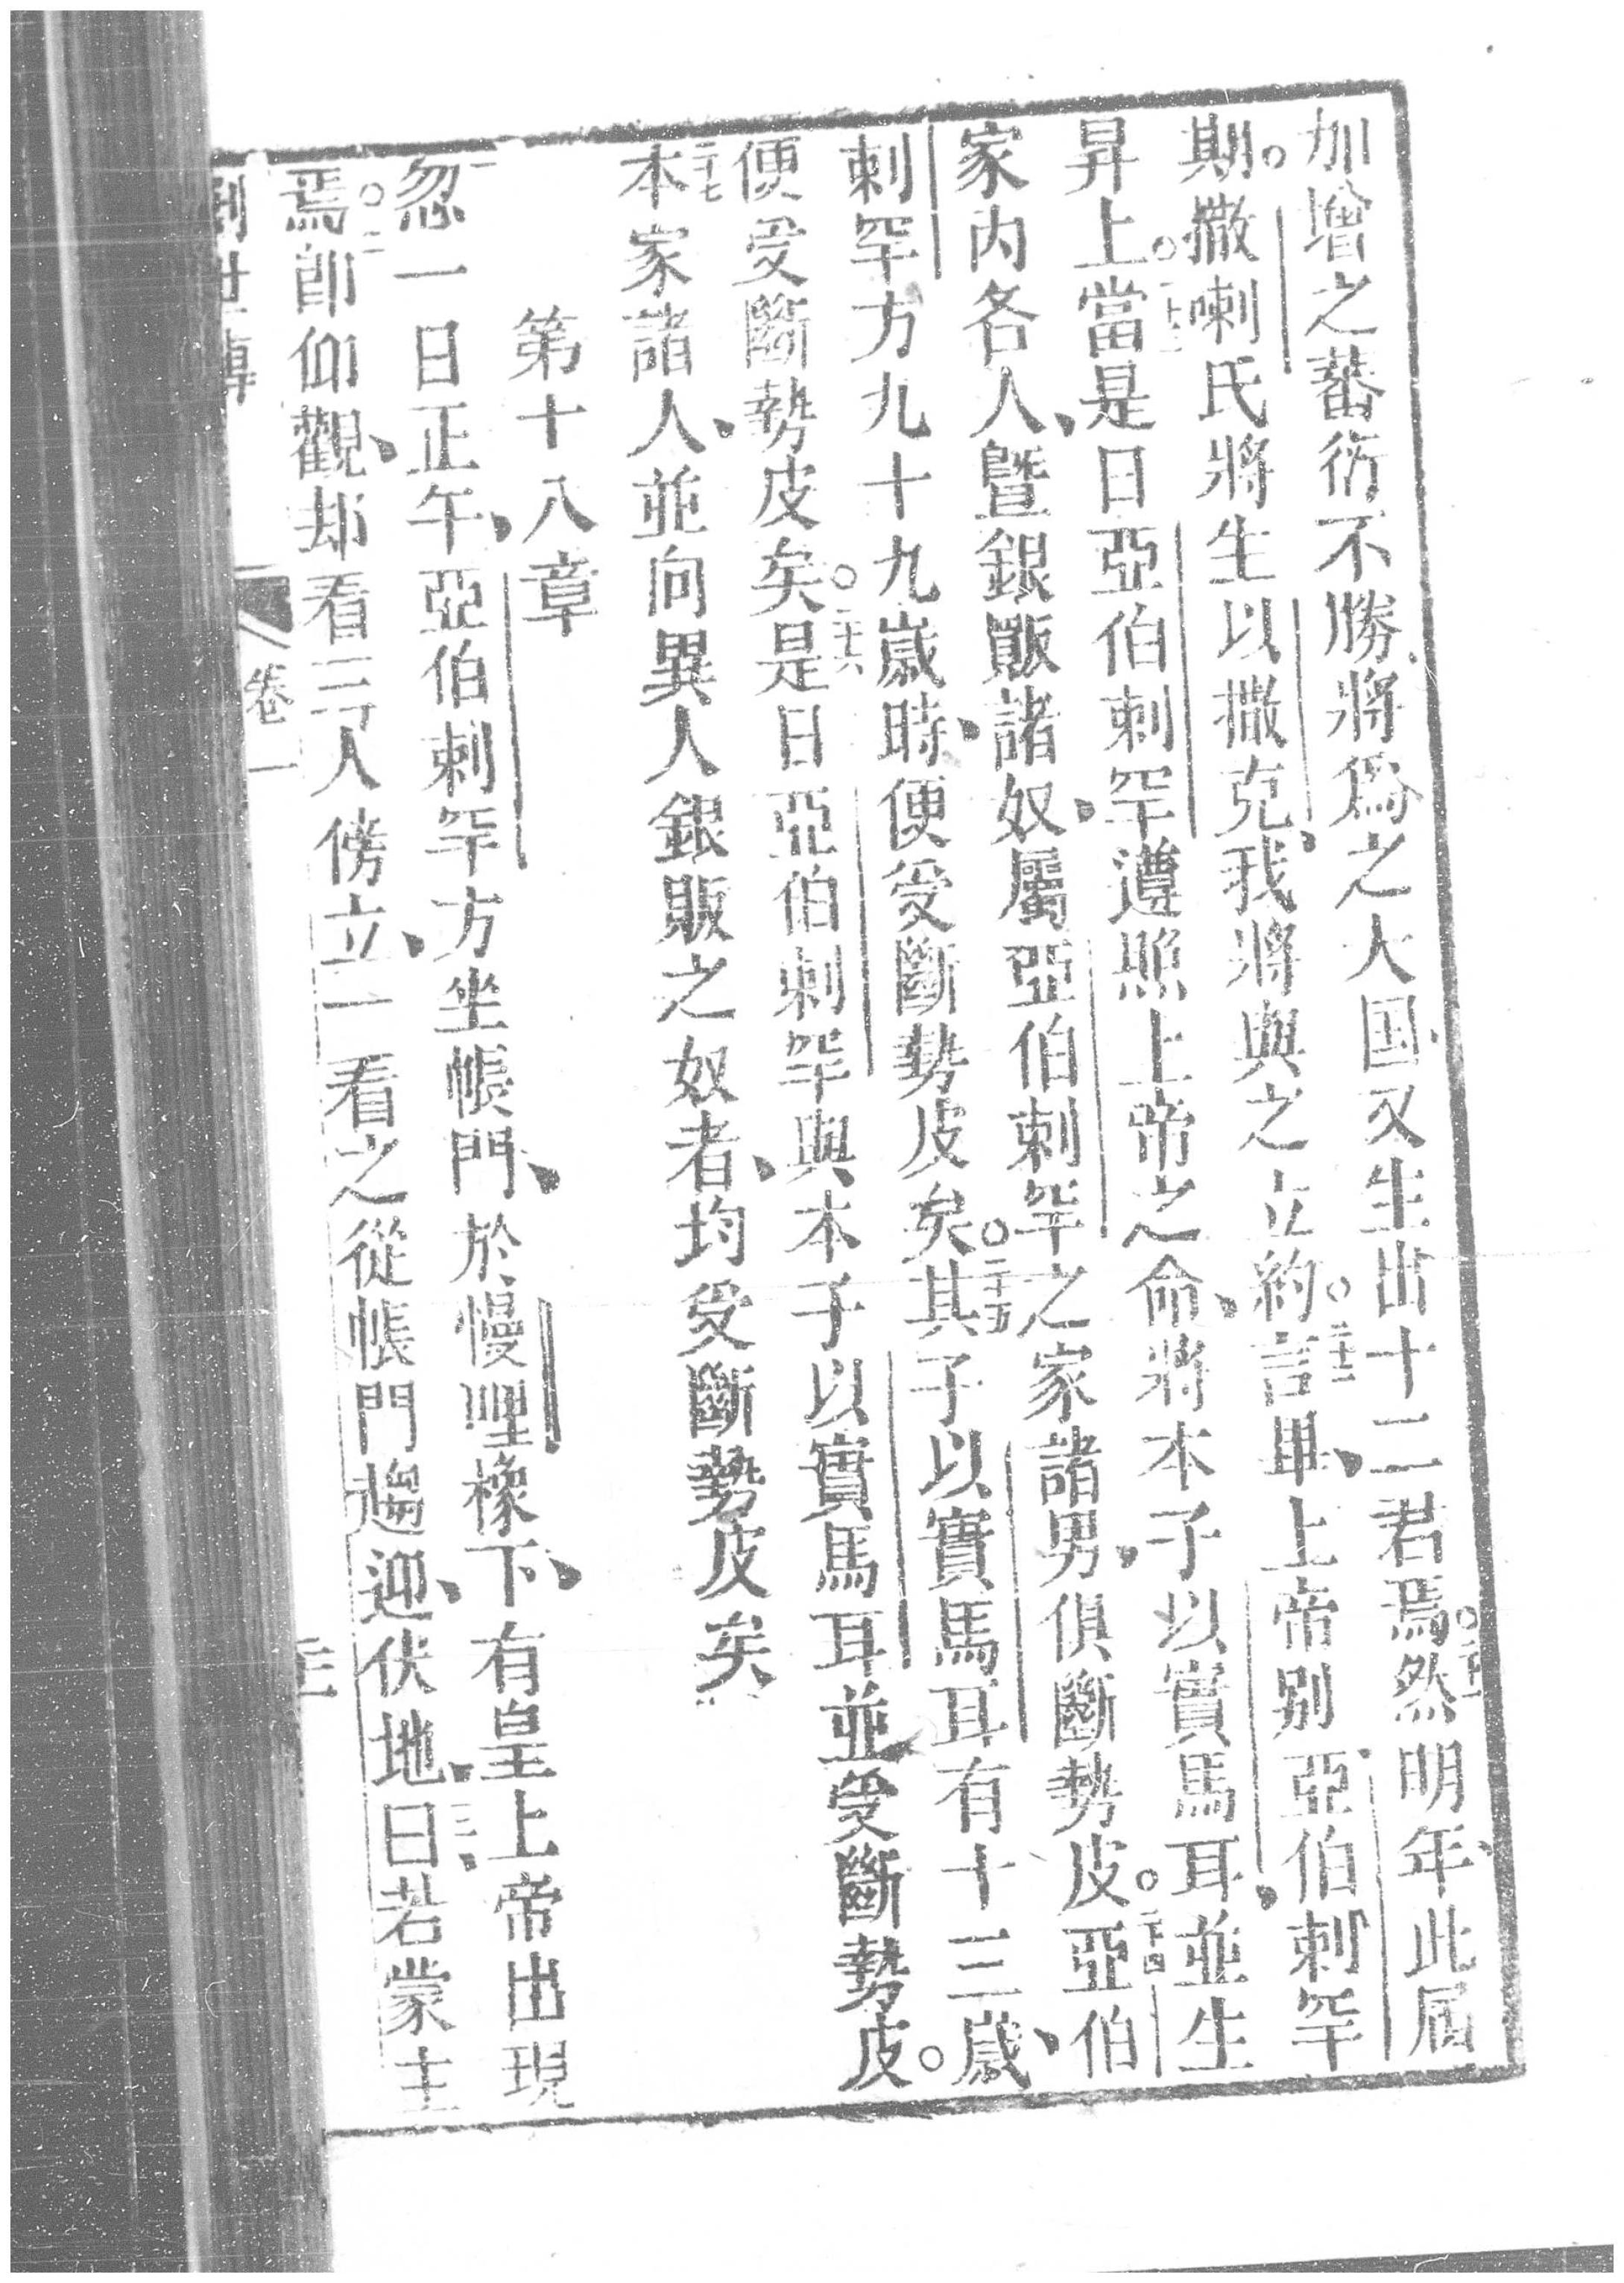 加增之蕃衍不勝將爲之大国又生出十二君焉。二十一然明年此屆
期。撒喇氏將生以撒克、我將與之立約。二十二言畢、上帝别亞伯剌罕、
昇上。二十三當是日亞伯剌罕遵照上帝之命、將本子以實馬耳並生
家內各人、曁銀販諸奴、屬亞伯剌罕之家諸男、俱斷勢皮。二十四亞伯
剌罕方九十九歲時、便受斷勢皮矣。二十五其子以實馬耳有十三歲、
便受斷勢皮矣。二十六是日亞伯剌罕與本子以實馬耳並受斷勢皮。
二十七本家諸人、並向異人銀販之奴者、均受斷勢皮矣
第十八章
一忽一日正午、亞伯剌罕方坐帳門、於慢哩橡下、有皇上帝出現
焉。二卽仰觀、却看三人傍立、一看之從帳門趨迎、伏地、三曰、若蒙主
卷一